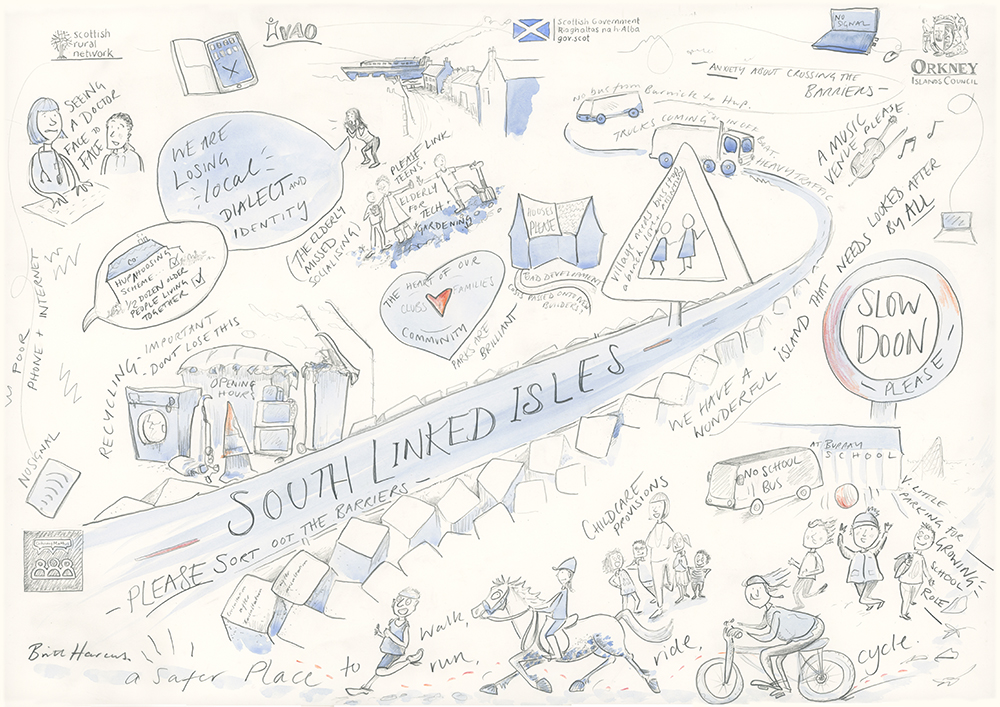 scottish
rural
network
VAO
Scottish Government
Riaghaltas na h-Alba
gov.scot
NO
SIGNAL
ORKNEY
ISLANDS COUNCIL
ANXIETY ABOUT CROSSING THE
BARRIERS -
NO bus from Burwick to Hup.
TRUCKS COMING
HEAVY TRAFFIC
A MUSIC
VENUE PLEASE
SEEING
A DOCTOR
FACE TO
FACE
WE ARE
LOSING
"local"
DIALECT AND
IDENTITY
PLEASE LINK
TEENS &
ELDERLY
FOR
TECH &
GARDENING
THE ELDERLY
MISSED
SOCIALISING
HOUSES
PLEASE
BAD DEVELOPMENT
COSTS PASSED ONTO
BUILDERS!
village needs bus stop
THE HEART OF OUR
CLUBS FAMILIES
COMMUNITY
PARKS ARE
BRILLIANT
HOUSING
SCHEME
1/2 DOZEN OLDER
PEOPLE LIVING
TOGETHER
POOR
PHONE + INTERNET
RECYCLING - IMPORTANT
- DONT LOSE THIS
OPENING
HOURS
NO SIGNAL
SOUTH LINKED ISLES
- PLEASE SORT OOT THE BARRIERS -
WE HAVE A
WONDERFUL
ISLAND THAT NEEDS LOOKED AFTER
BY ALL
SLOW
DOON
- PLEASE -
AT BURRAY
SCHOOL
NO SCHOOL
BUS
V. LITTLE
PARKING FOR
GROWING
SCHOOL
ROLE
CHILDCARE
PROVISIONS
a safer Place to walk,
run,
ride,
cycle.